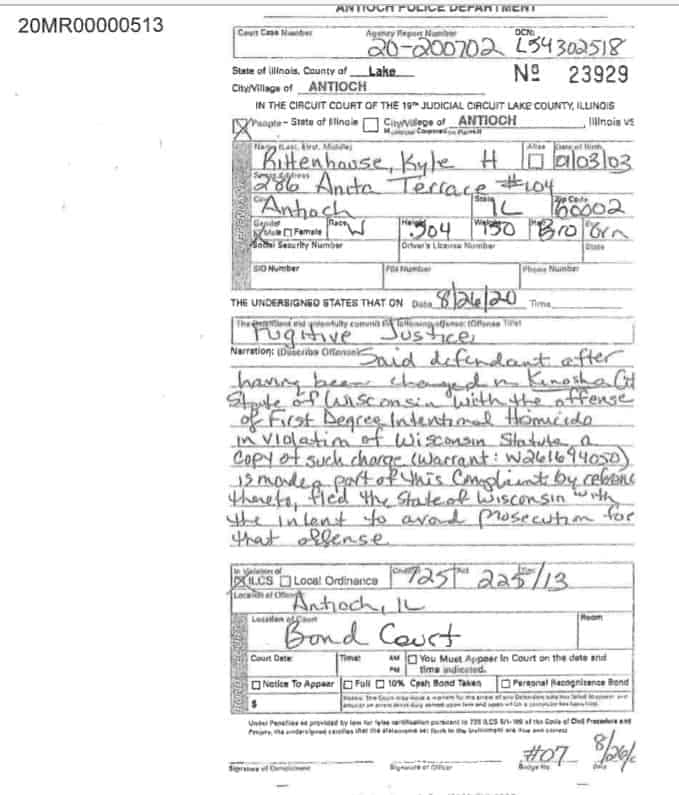 ANTIOCH POLICE DEPARTMENT
20MR00000513
Court Case Number Agency Report Number DCN:
20-200702 L54302518
State of Illinois, County of Lake Nº 23929
City/Village of ANTIOCH
IN THE CIRCUIT COURT OF THE 19TH JUDICIAL CIRCUIT LAKE COUNTY, ILLINOIS
People - State of Illinois City/Village of ANTIOCH , Illinois VS
Municipal Corporation Plaintiff
Name (Last, First, Middle) Alias Date of Birth
Rittenhouse, Kyle H 01/03/03
Street Address
286 Anita Terrace #104
City State Zip Code
Antioch IL 60002
Gender Race Height Weight Hair Eyes
Male Female W 504 150 Bro Grn
Social Security Number Driver's License Number State
SID Number FBI Number Phone Number
THE UNDERSIGNED STATES THAT ON Date 8/26/20 Time
The Defendant did unlawfully commit the following offense: (Offense Title)
Fugitive Justice
Narration: (Describe Offense) Said defendant after
having been charged in Kenosha
State of Wisconsin with the offense
of First Degree Intentional Homicide
in violation of Wisconsin Statute a
copy of such charge (Warrant: W261694050)
is made a part of this Complaint by
thereto, fled the State of Wisconsin with
the intent to avoid prosecution for
that offense
In Violation of
ILCS Local Ordinance 725 225/13
Location of Offense
Antioch, IL
Location of Court Room
Bond Court
Court Date: Time: AM You Must Appear In Court on the date and
PM time indicated.
Notice To Appear Full 10% Cash Bond Taken Personal Recognizance Bond
$
Under Penalties as provided by law for false certification pursuant to 735 ILCS 5/1-109 of the Code of Civil Procedure and
Perjury, the undersigned certifies that the statements set forth in the instrument are true and correct
#07 8/26/
Signature of Complainant Signature of Officer Badge No. Date